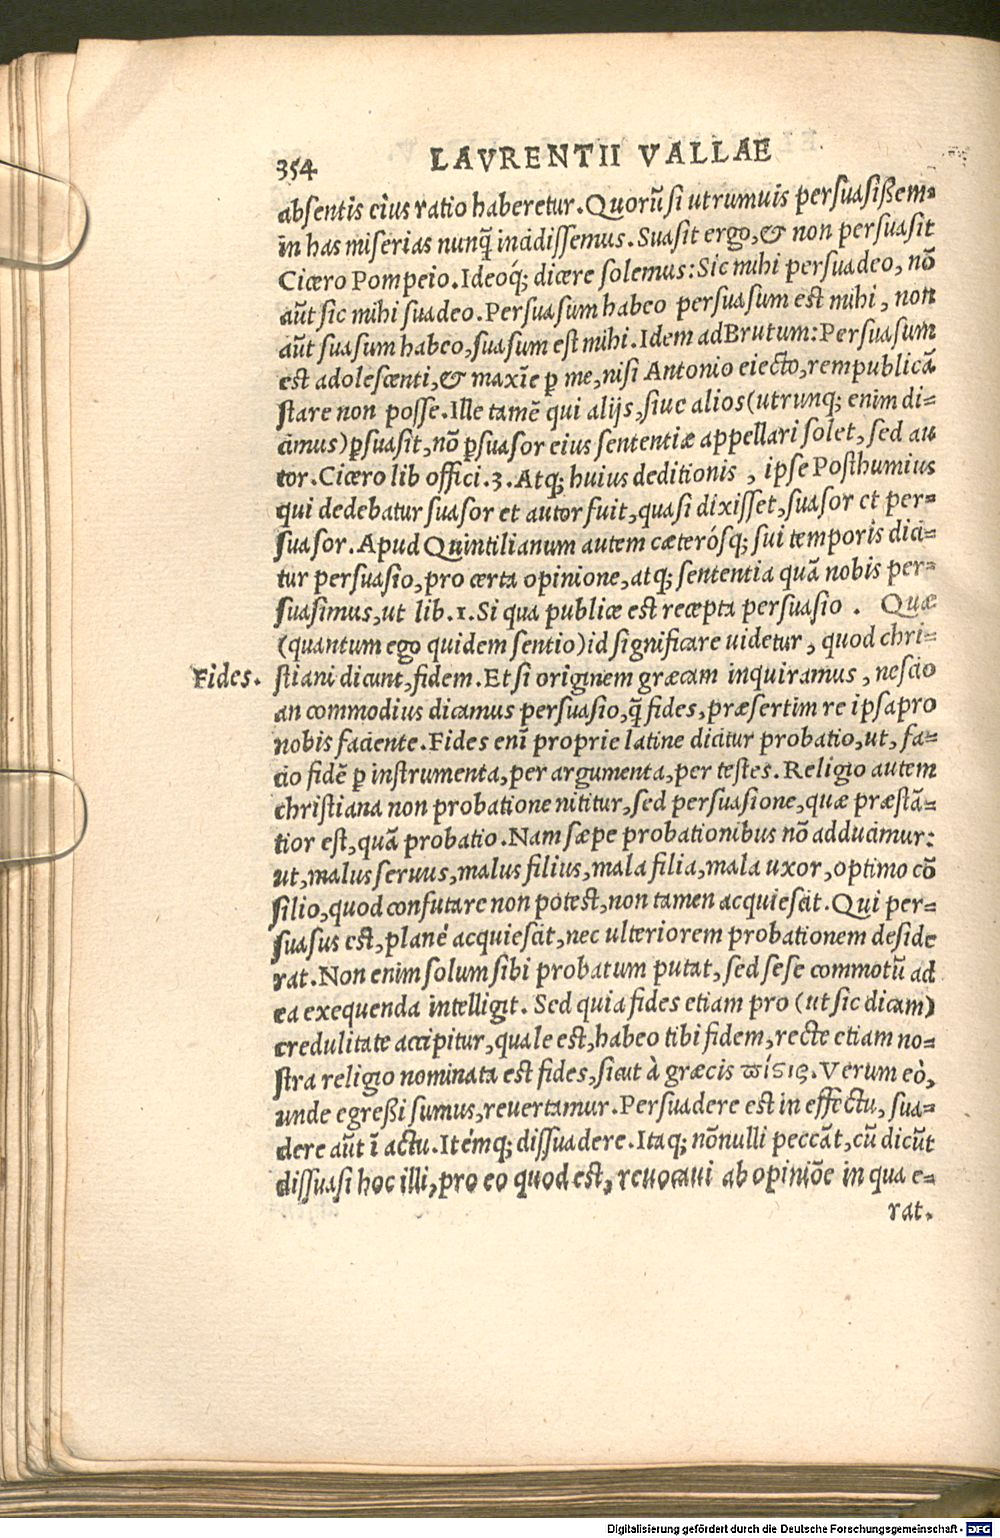 354 LAVRENTII VALLAE
absentis eius ratio haberetur. Quorũ si utrumuis persuasißem=
in has miserias nunq̃ incidissemus. Suasit ergo, & non persuasit
Cicero Pompeio. Ideoq́; dicere solemus: Sic mihi persuadeo, nõ
aũt sic mihi suadeo. Persuasum habeo persuasum est mihi, non
aũt suasum habeo, suasum est mihi. Idem ad Brutum: Persuasum
est adolescenti, & maxĩe ꝑ me, nisi Antonio eiecto, rempublicã
stare non posse. Ille tamẽ qui alijs, siue alios (utrunq; enim di=
cimus) ꝑsuasit, nõ ꝑsuasor eius sententiæ appellari solet, sed au
tor. Cicero lib offici. 3. Atq; huius deditionis, ipse Posthumius
qui dedebatur suasor et autor fuit, quasi dixisset, suasor et per=
suasor. Apud Quintilianum autem cæterósq; sui temporis dici=
tur persuasio, pro certa opinione, atq; sententia quã nobis per=
suasimus, ut lib. 1. Si qua publice est recepta persuasio. Quæ
(quantum ego quidem sentio) id significare uidetur, quod chri=
Fides. stiani dicunt, fidem. Et si originem græcam inquiramus, nescio
an commodius dicamus persuasio, q̃ fides, præsertim re ipsa pro
nobis faciente. Fides enĩ proprie latine dicitur probatio, ut, fa=
cio fidẽ ꝑ instrumenta, per argumenta, per testes. Religio autem
christiana non probatione nititur, sed persuasione, quæ præstã=
tior est, quã probatio. Nam sæpe probationibus nõ adducimur:
ut, malus seruus, malus filius, mala filia, mala uxor, optimo cõ
silio, quod confutare non potest, non tamen acquiescit. Qui per=
suasus est, planè acquiescit, nec ulteriorem probationem deside
rat. Non enim solum sibi probatum putat, sed sese commotũ ad
ea exequenda intelligit. Sed quia fides etiam pro (ut sic dicam)
credulitate accipitur, quale est, habeo tibi fidem, recte etiam no=
stra religio nominata est fides, sicut à græcis πίσις. Verum eò,
unde egreßi sumus, reuertamur. Persuadere est in effectu, sua=
dere aũt ĩ actu. Itémq; dissuadere. Itaq; nõnulli peccãt, cũ dicũt
dissuasi hoc illi, pro eo quod est, reuocaui ab opiniõe in qua e=
rat.
Digitalisierung gefördert durch die Deutsche Forschungsgemeinschaft - DFG